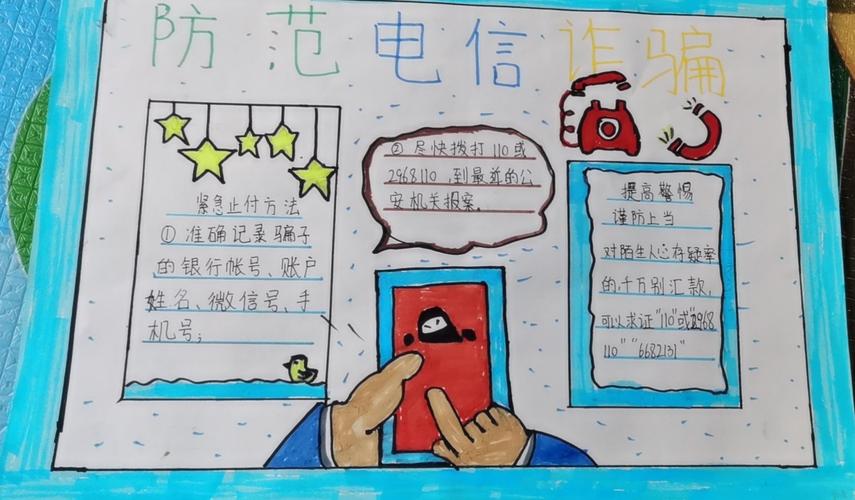 防范电信诈骗
紧急止付方法
①准确记录骗子
的银行帐号、账户
姓名、微信号、手
机号；
②尽快拨打110或
2968110，到最近的公
安机关报案。
提高警惕
谨防上当
对陌生人心存疑率
的，千万别汇款，
可以求证"110"或"2968
110""6682131"